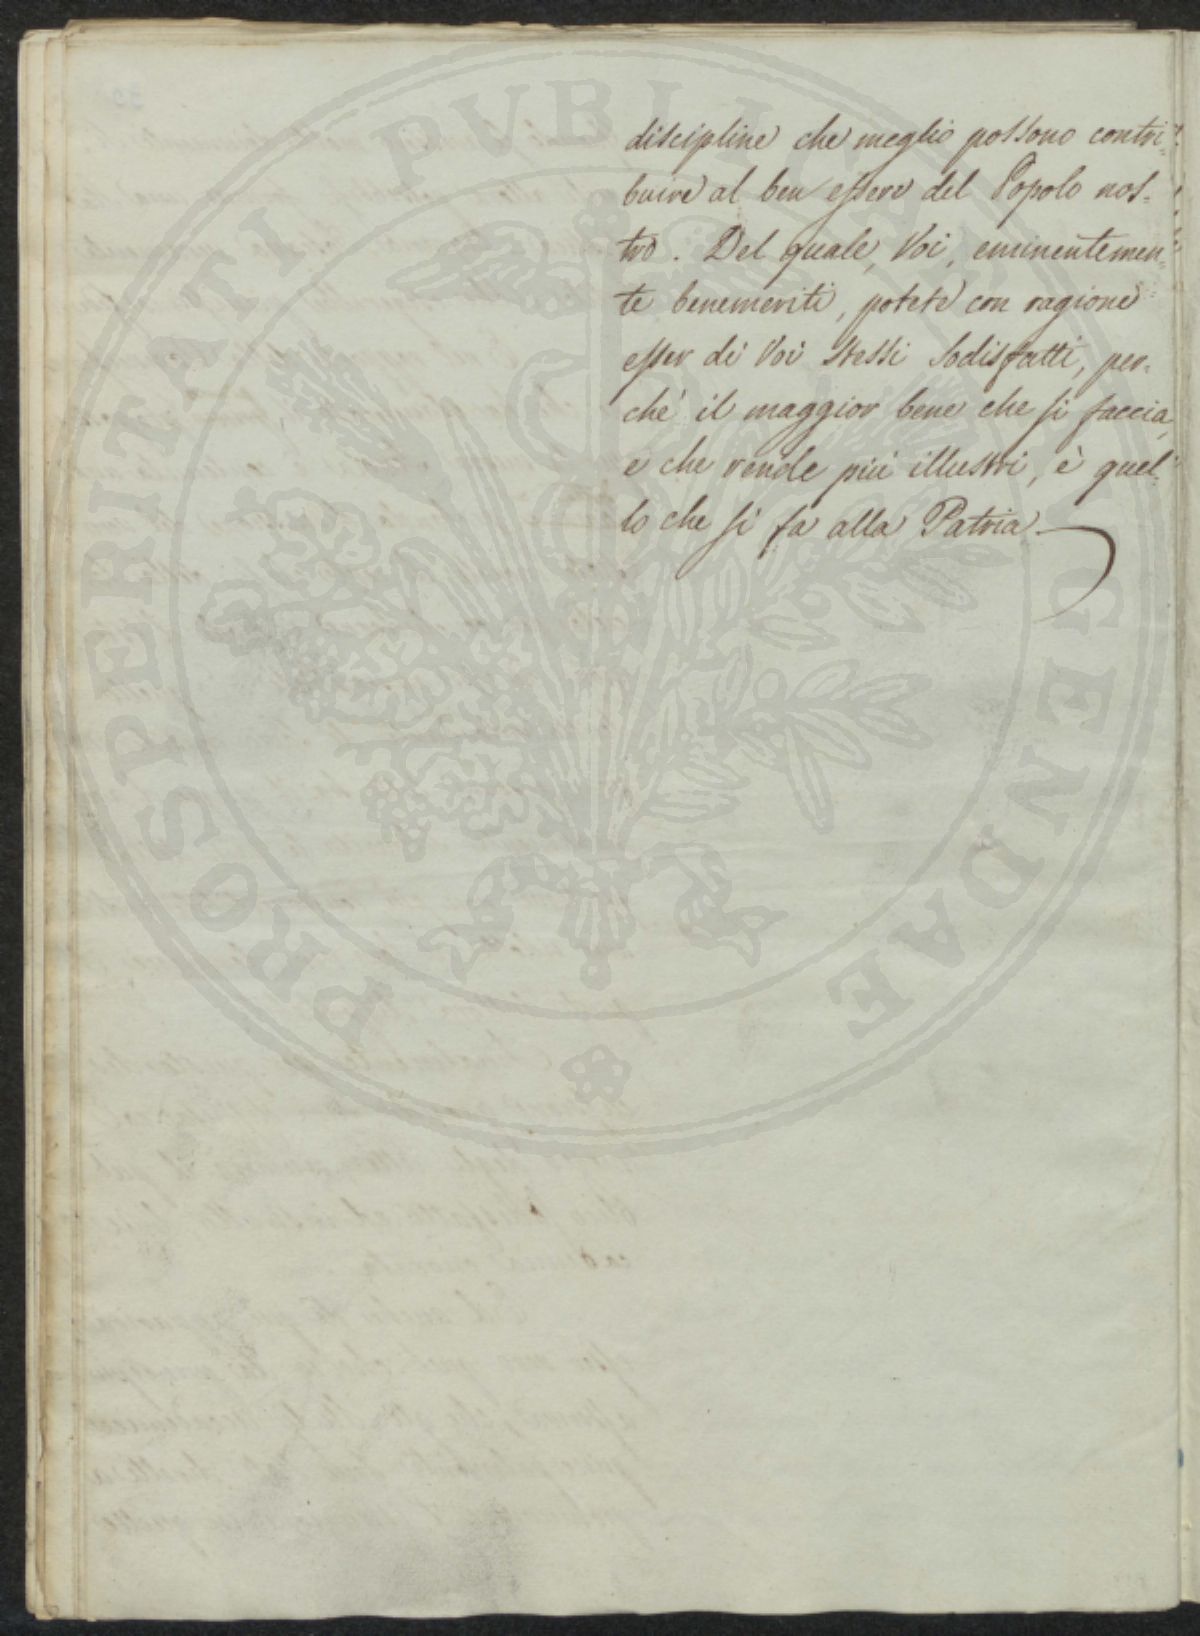 discipline che meglio possono contri=
buire al ben essere del Popolo nos=
tro. Del quale, Voi, eminentemen=
te benemeriti, potete con ragione
esser di Voi stessi sodisfatti, per=
chè il maggior bene che si faccia,
e che rende più illustri, è quel=
lo che si fa alla Patria.
PROSPERITATI PVBLICAE AVGENDAE